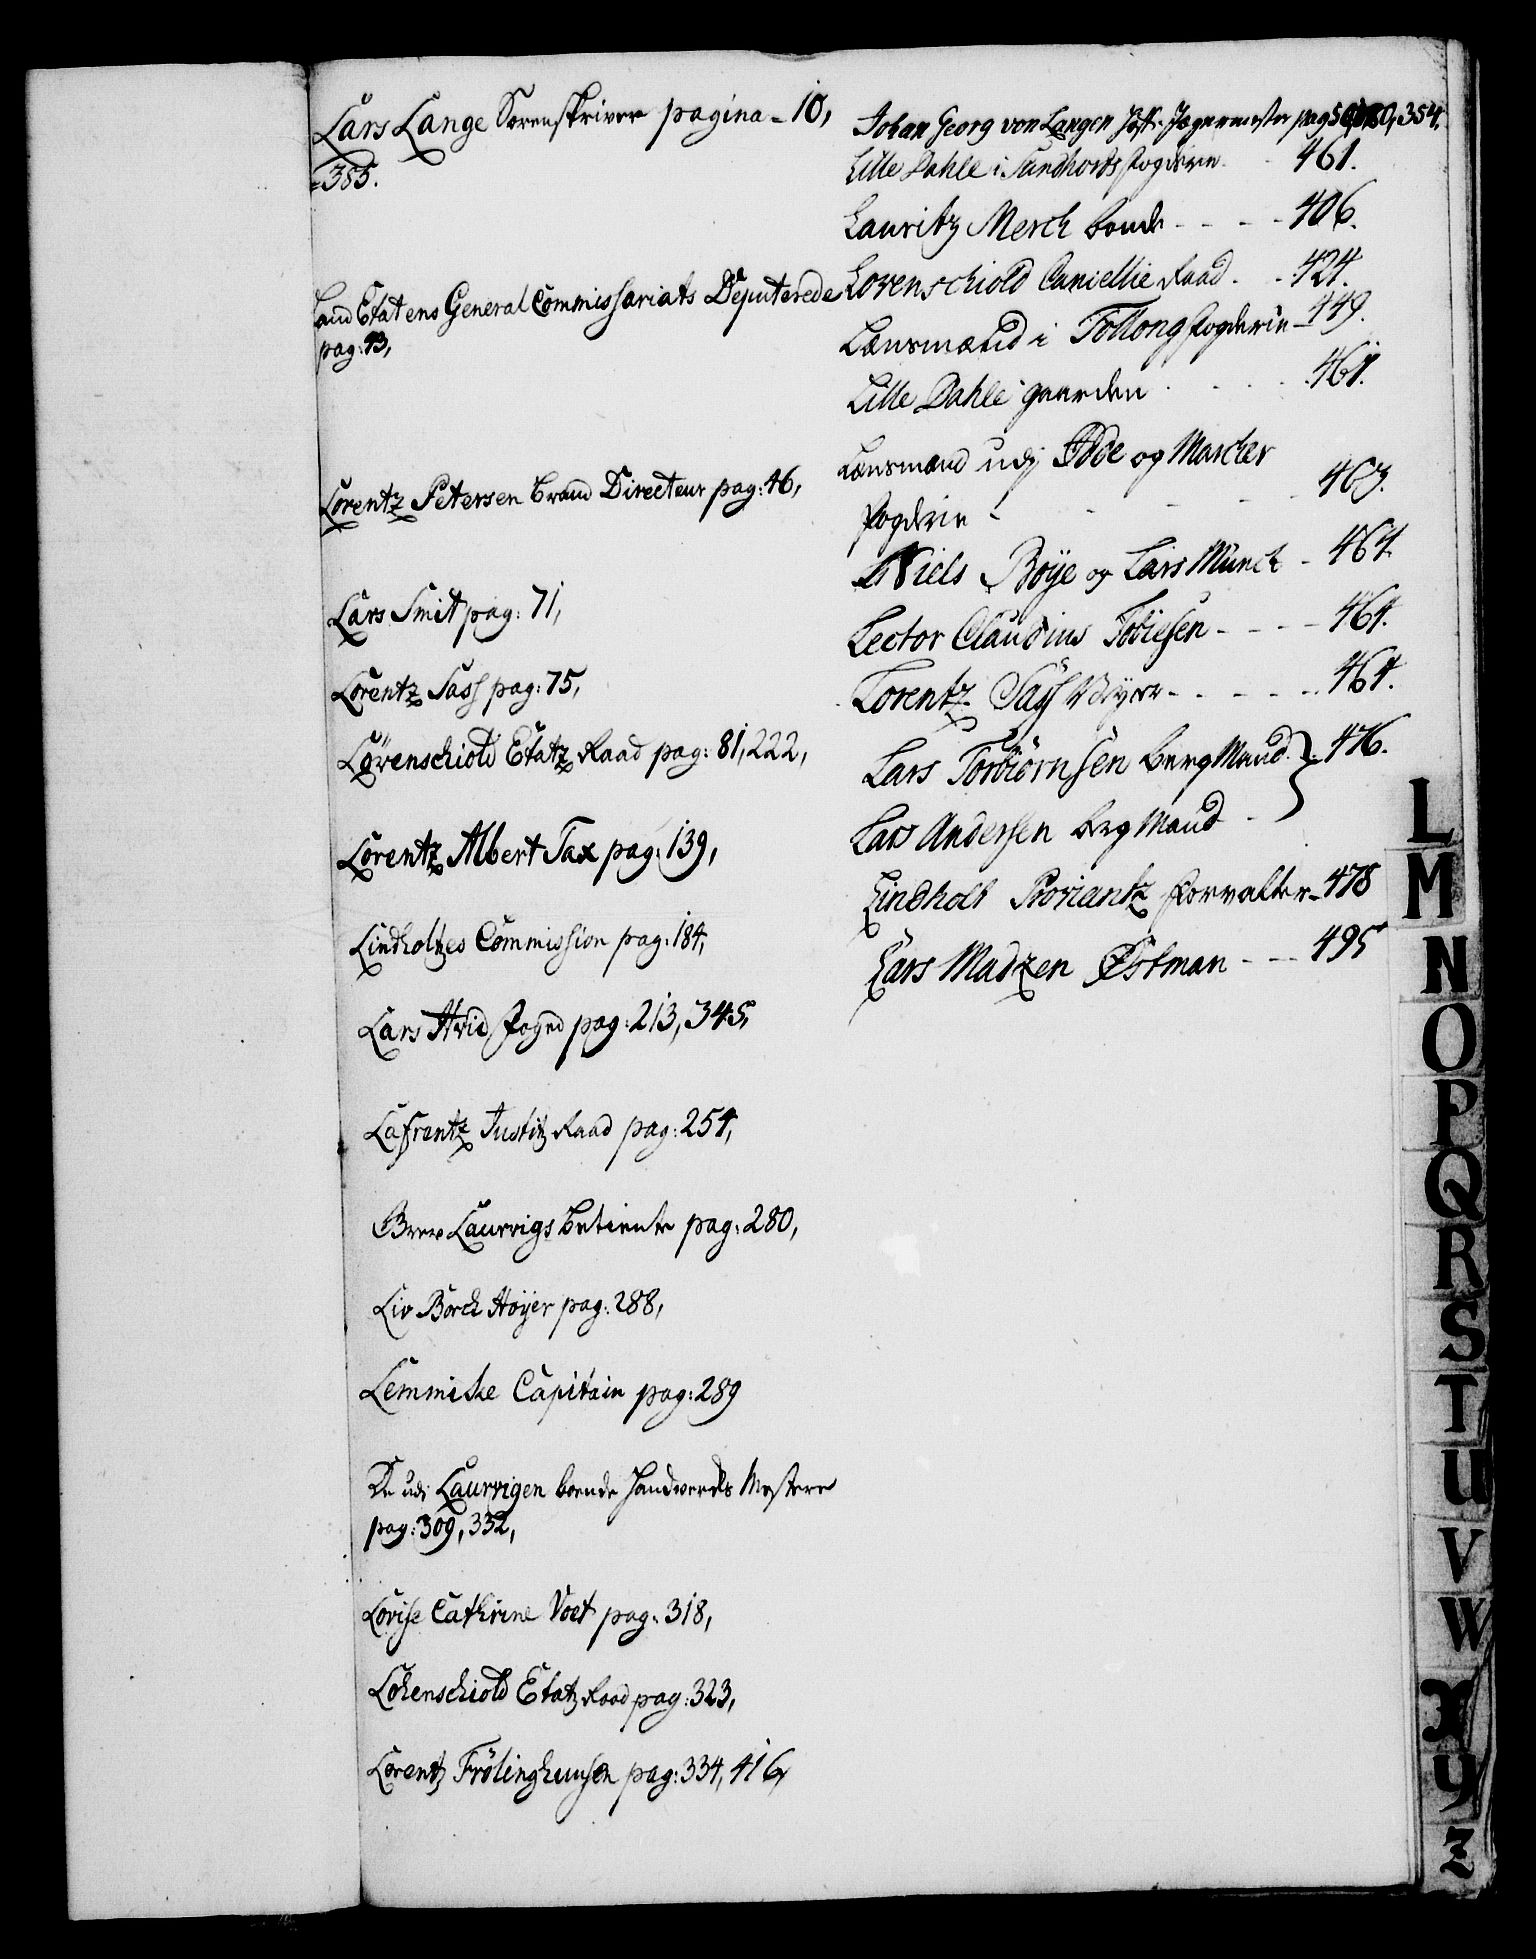 Lars Lange Sorenskriver pagina - 10,
=385.
Land Etatens General Commissariats Deputerede
pag: 43,
Lorentz Petersen Brand Directeur pag: 46,
Lars Smit pag: 71,
Lorentz Sass pag: 75,
Lövenschiold Etatz Raad pag: 81, 222,
Lorentz Albert Tax pag: 139,
Lindholtzes Commission pag: 184,
Lars Hvid Foged pag: 213, 345,
Lafrentz Justitz Raad pag: 254,
Grev Laurvigs betiente pag: 280,
Liv Borch Höyer pag: 288,
Lemmiche Capitain pag: 289
De udj Laurvigen boende Handverks Mestere
pag: 309, 332,
Lovise Cathrine Voet pag: 318,
Lövenschiold Etatz Raad pag: 323,
Lorentz Frölinghuusen pag: 334, 416,
Johan Georg von Langen Hoff-Jægermester pag 354.
Lille Dahle i Sundhords fogderie - 461.
Lauritz Merch bonde - - - - 406.
Lovenschiold Cancellie Raad - - 424.
Lænsmænd i Follong fogderie - 449.
Lille Dahle gaarden - - - - 461.
Lænsmænd udj Idde og Marcker
fogderie - - - - - 463.
Niels Böye og Lars Munch - 464.
Lector Claudius Tobiesen - - - - 464.
Lorentz Sass - - - - - 464.
Lars Torbiörnsen berg Mand } 476.
Lars Andersen berg Mand -
Lindholt Proviantz forvalter - 478
Lars Madzen Östman - - - 495
L
M
N
O
P
Q
R
S
T
U
V
W
X
Y
Z